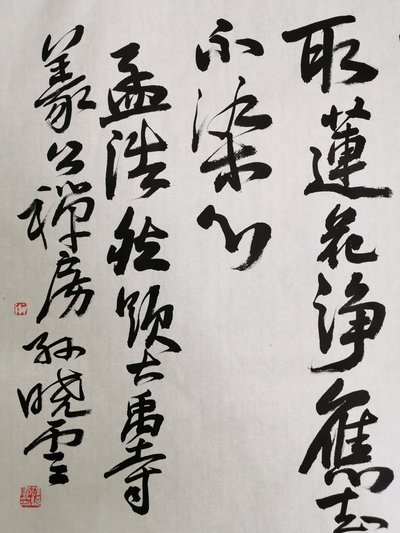 取蓮花淨應知
不染心
孟浩然題大禹寺
義公禪房孙晓雲